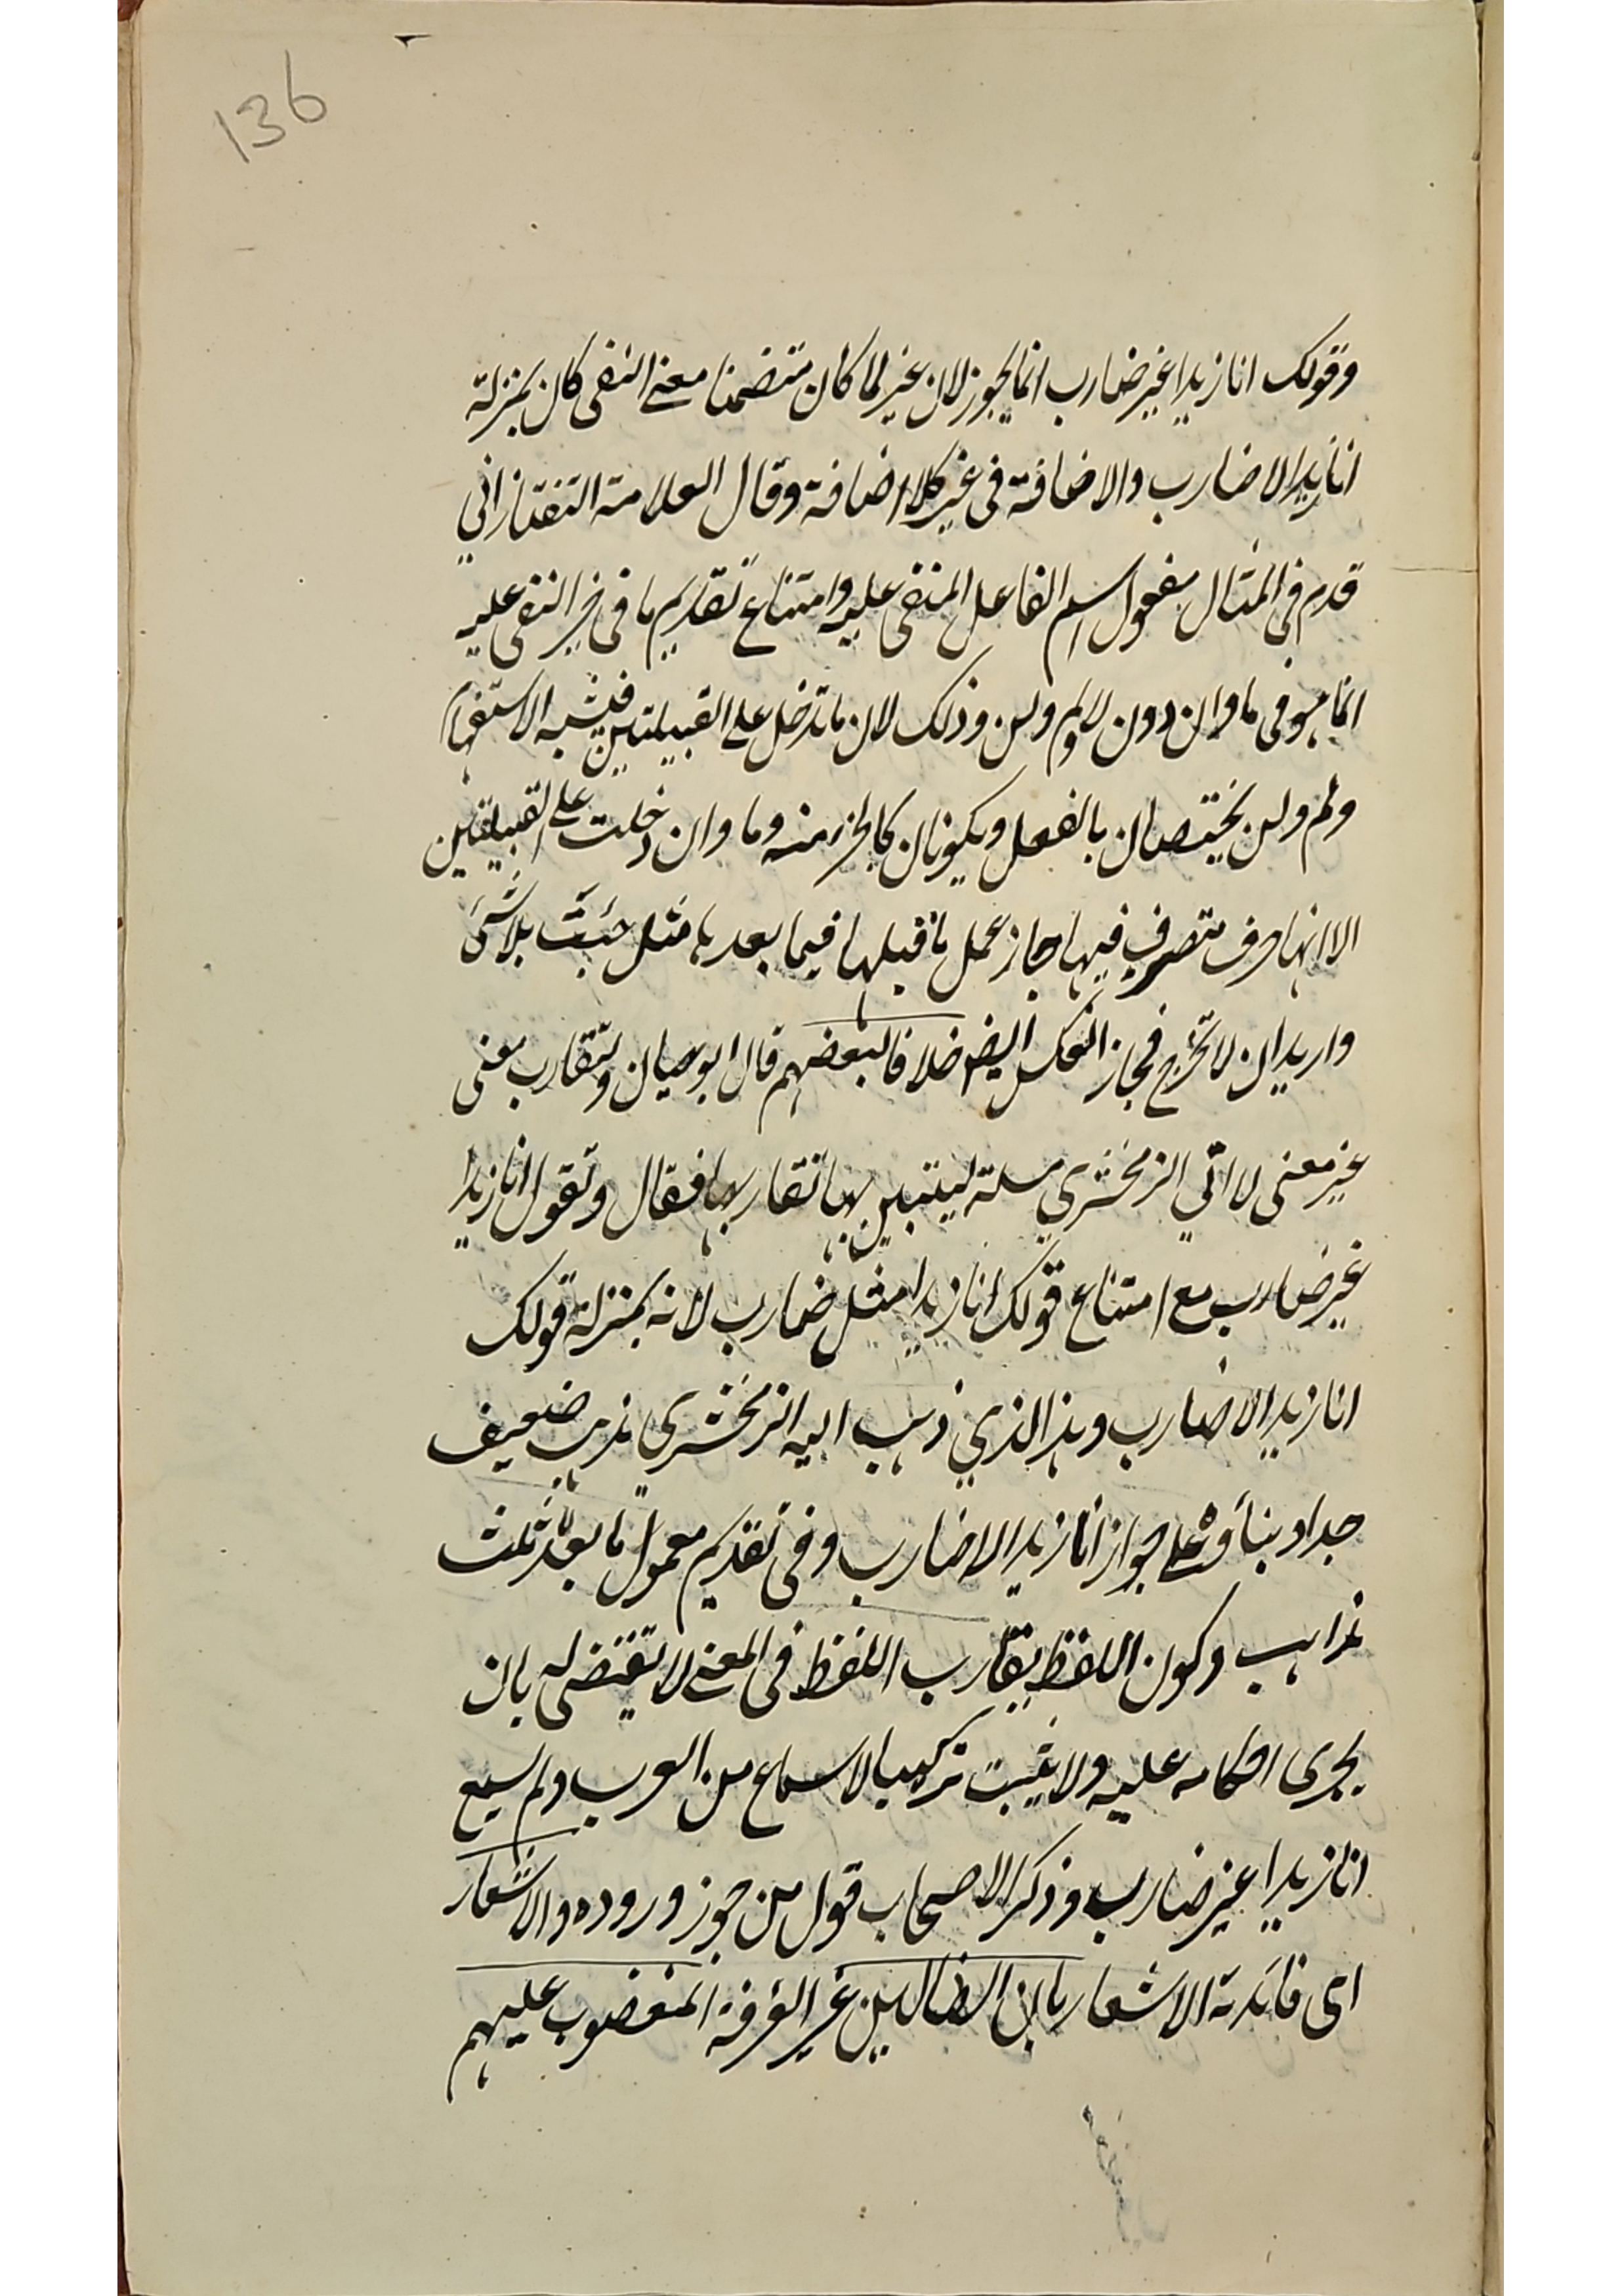 136
وقولك انا زيدا غير ضارب انما يجوز لان غير لما كان متضمنا معنى النفى كان بمنزلة
انا زيدا لا ضارب والاضافة فى غير كلا اضافة وقال العلامة التفتازاني
قدم فى المثال مفعول اسم الفاعل المنفى عليه وامتناع تقديم ما فى حيز النفى عليه
انما هو فى ما وان دون لا ولم ولن وذلك لان ما تدخل على القبيلتين فيشبه الاستفهام
ولم ولن يختصان بالفعل ويكونان كالجزء منه وما وان دخلت على القبيلتين
الا انها حرف متصرف فيها جاز عمل ما قبلها فيما بعدها مثل جئت بلا شئ
واريد ان لا تخرج فجاز العكس ايضا خلافا لبعضهم قال ابو حيان ولتقارب معنى
غير معنى لا اتي الزمخشري مسئلة ليتبين بها تقاربها فقال وتقول انا زيدا
غير ضارب مع امتناع قولك انا زيدا مثل ضارب لانه بمنزلة قولك
انا زيدا لا ضارب وهذا الذي ذهب اليه الزمخشري مذهب ضعيف
جدا وبناؤه على جواز انا زيدا لا ضارب وفى تقديم معمول ما بعد لا ثلث
مذاهب وكون اللفظ يقارب اللفظ فى المعنى لا يقتضى له بان
يجرى احكامه عليه ولا يثبت تركيب الا بسماع من العرب ولم يسمع
انا زيدا غير ضارب وذكر الاصحاب قول من جوز وروده والاشعار
اى فائدة الاشعار بان الضالين غير الفرقة المغضوب عليهم